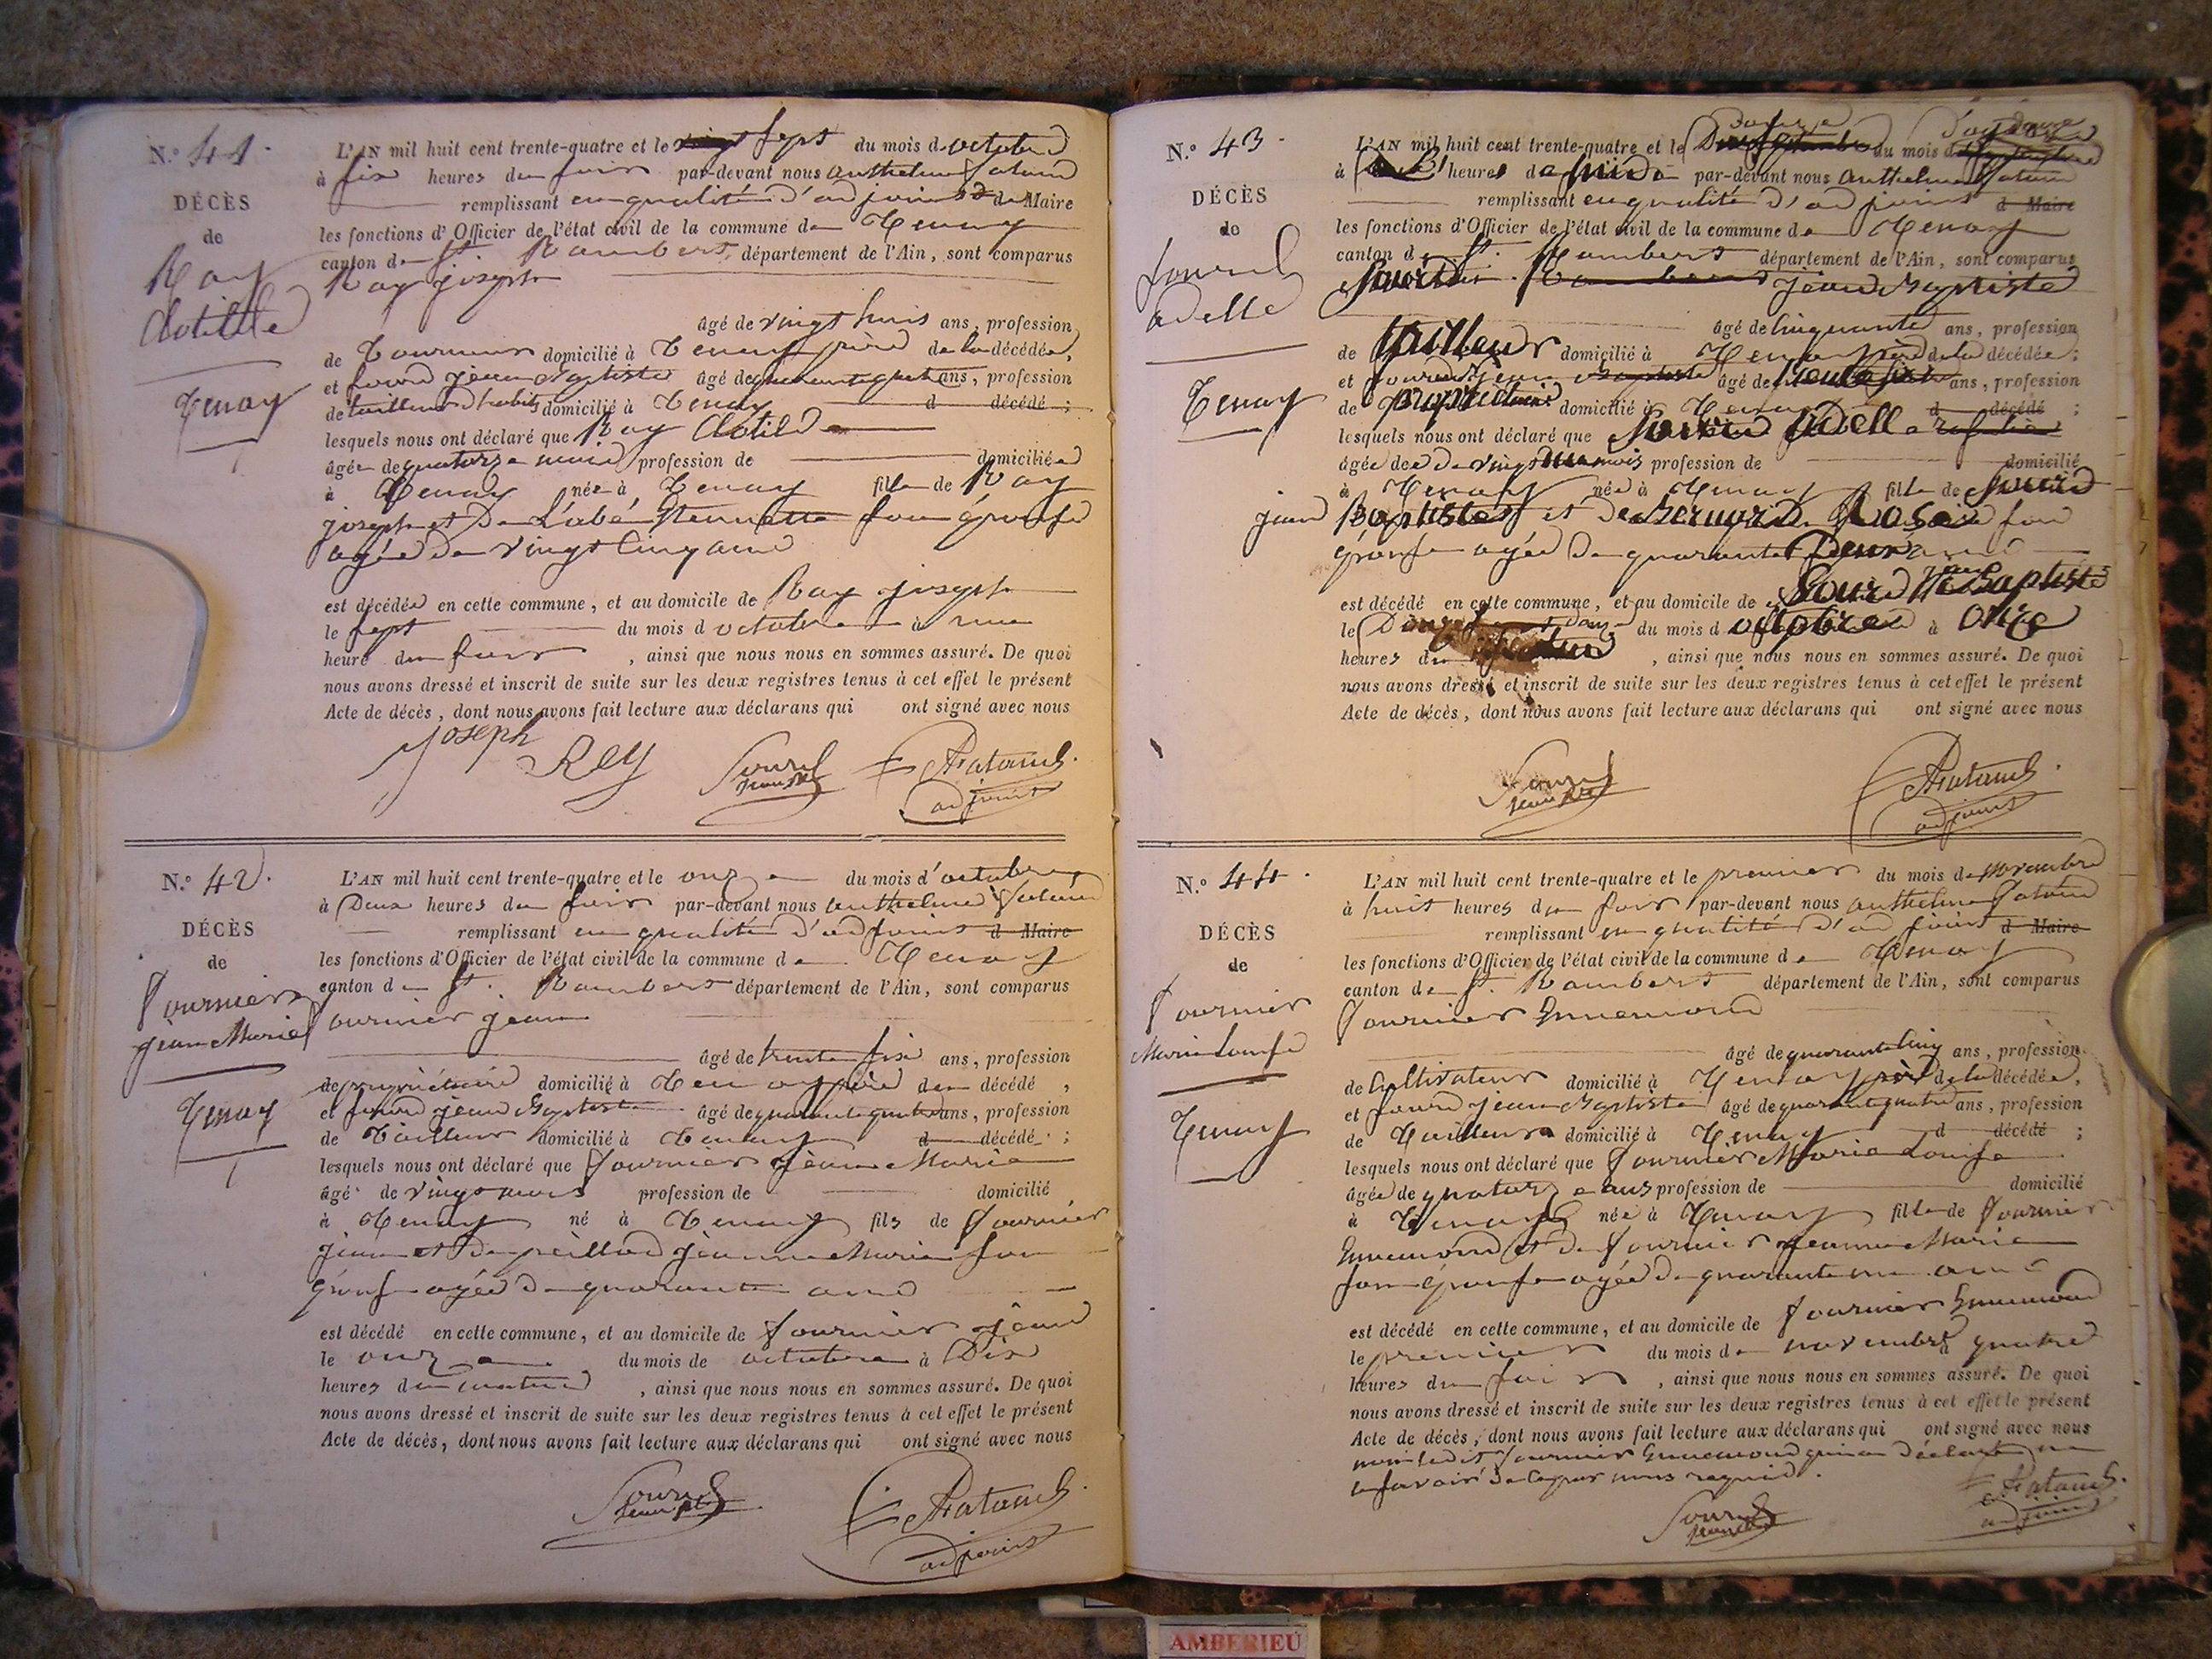 N.º 41.
DÉCÈS
de
Ray
Clotilde
Tenay
L'AN mil huit cent trente-quatre et le sept du mois d octobre
à six heures du soir par-devant nous anthelme
remplissant en qualité d'adjoint de Maire
les fonctions d'Officier de l'état civil de la commune de Tenay
canton de St. Rambert, département de l'Ain, sont comparus
Ray joseph
âgé de vingt huit ans, profession
de Tourneur domicilié à Tenay père de la décédée,
et jean Baptiste âgé de quarante quatre ans, profession
de tailleur d'habits domicilié à Tenay d décédé ;
lesquels nous ont déclaré que Ray Clotilde
âgée de quatorze mois profession de domiciliée
à Tenay née à Tenay fille de Ray
joseph et De son épouse
agée de vingt cinq ans
est décédée en cette commune, et au domicile de Ray joseph
le sept du mois d octobre à une
heure du soir, ainsi que nous nous en sommes assuré. De quoi
nous avons dressé et inscrit de suite sur les deux registres tenus à cet effet le présent
Acte de décès, dont nous avons fait lecture aux déclarans qui ont signé avec nous
Joseph Rey
adjoint
N.º 42.
DÉCÈS
de
Fournier
jean Marie
Tenay
L'AN mil huit cent trente-quatre et le onze du mois d'octobre
à Deux heures du soir par-devant nous anthelme
remplissant en qualité d'adjoint d Maire
les fonctions d'Officier de l'état civil de la commune de Tenay
canton de St. Rambert département de l'Ain, sont comparus
fournier jean
âgé de trente six ans, profession
de propriétaire domicilié à Tenay père du décédé,
et jean Baptiste âgé de quarante quatre ans, profession
de Tailleur domicilié à Tenay d décédé ;
lesquels nous ont déclaré que fournier jean Marie
âgé de vingt mois profession de domicilié
à Tenay né à Tenay fils de fournier
jean et De jeanne Marie son
épouse agée de quarante ans
est décédé en cette commune, et au domicile de fournier jean
le onze du mois de octobre à Dix
heures du matin, ainsi que nous nous en sommes assuré. De quoi
nous avons dressé et inscrit de suite sur les deux registres tenus à cet effet le présent
Acte de décès, dont nous avons fait lecture aux déclarans qui ont signé avec nous
adjoint
N.º 43.
DÉCÈS
de
adelle
Tenay
L'AN mil huit cent trente-quatre et le du mois d
à heures de midi par-devant nous anthelme
remplissant en qualité d'adjoint d Maire
les fonctions d'Officier de l'état civil de la commune de Tenay
canton de St. Rambert département de l'Ain, sont comparus
jean Baptiste
âgé de cinquante ans, profession
de tailleur domicilié à Tenay père de la décédée ;
et jean Baptiste âgé de ans, profession
de propriétaire domicilié à Tenay d décédé ;
lesquels nous ont déclaré que adelle
âgée de vingt mois profession de domicilié
à Tenay née à Tenay fille de
jean Baptiste et de Bernard Rose son
épouse agée de quarante Deux ans
est décédé en cette commune, et au domicile de Baptiste
le Douze du mois d octobre à onze
heures du matin, ainsi que nous nous en sommes assuré. De quoi
nous avons dressé et inscrit de suite sur les deux registres tenus à cet effet le présent
Acte de décès, dont nous avons fait lecture aux déclarans qui ont signé avec nous
adjoint
N.º 44.
DÉCÈS
de
Fournier
Marie Louise
Tenay
L'AN mil huit cent trente-quatre et le premier du mois de novembre
à huit heures du soir par-devant nous anthelme
remplissant en qualité d'adjoint d Maire
les fonctions d'Officier de l'état civil de la commune de Tenay
canton de St. Rambert département de l'Ain, sont comparus
fournier Ennemond
âgé de quarante cinq ans, profession
de Cultivateur domicilié à Tenay père de la décédée,
et jean Baptiste âgé de quarante quatre ans, profession
de Tailleur domicilié à Tenay d décédé ;
lesquels nous ont déclaré que fournier Marie Louise
âgée de quatorze ans profession de domicilié
à Tenay née à Tenay fille de fournier
Ennemond et de fournier jeanne Marie
son épouse agée de quarante un ans
est décédé en cette commune, et au domicile de fournier Ennemond
le premier du mois de novembre quatre
heures du soir, ainsi que nous nous en sommes assuré. De quoi
nous avons dressé et inscrit de suite sur les deux registres tenus à cet effet le présent
Acte de décès, dont nous avons fait lecture aux déclarans qui ont signé avec nous
non ledit fournier Ennemond qui a déclaré ne
le savoir de ce par nous requis.
adjoint
AMBERIEU